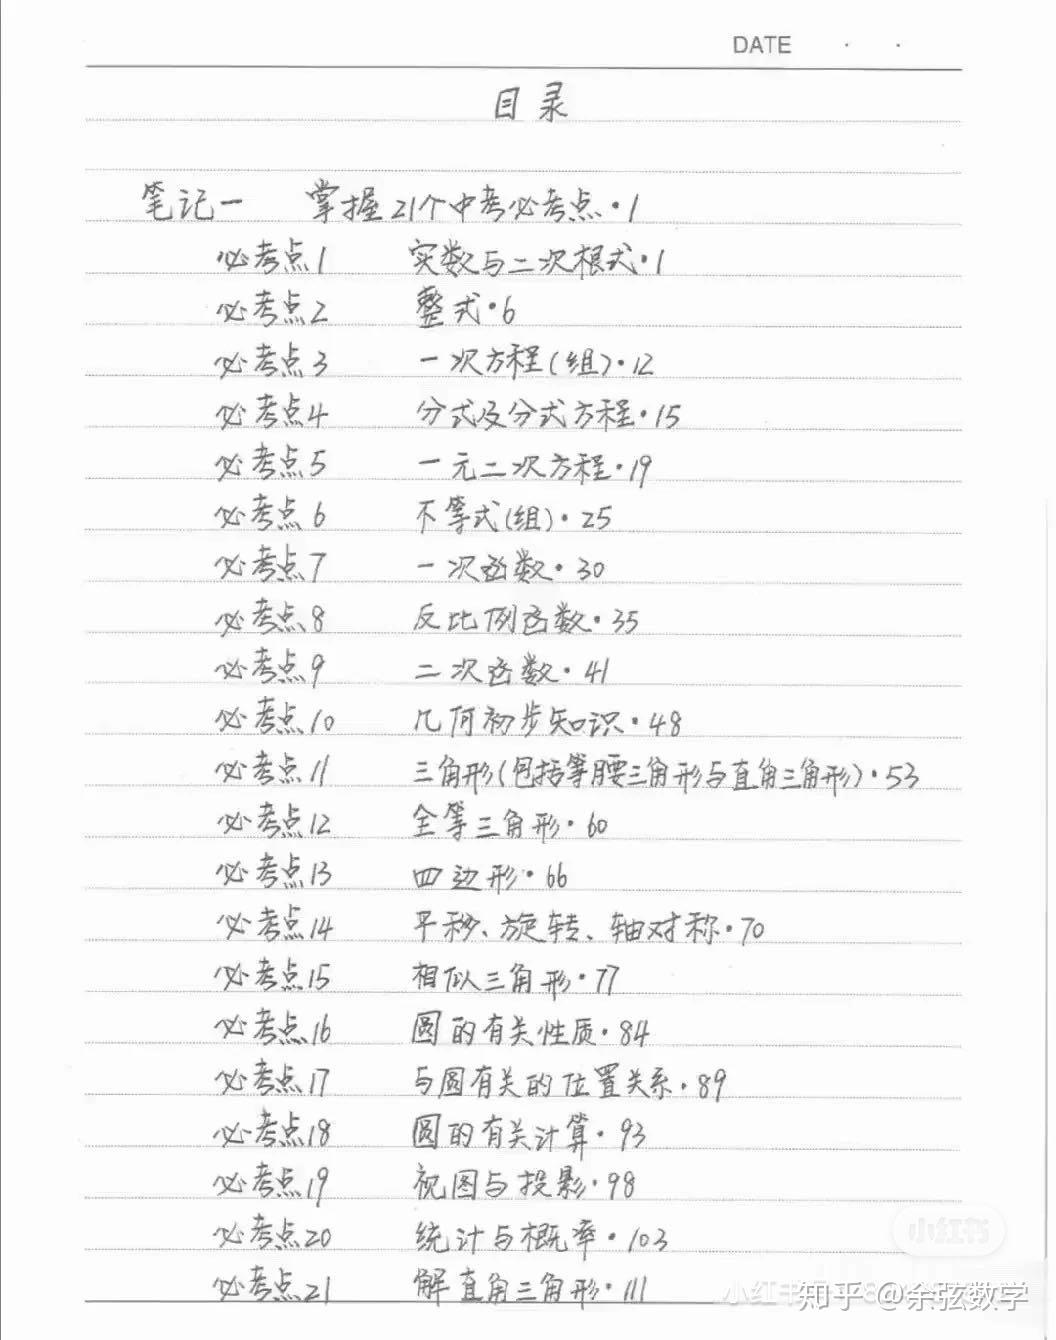 DATE · ·
目录
笔记一 掌握21个中考必考点·1
必考点1 实数与二次根式·1
必考点2 整式·6
必考点3 一次方程(组)·12
必考点4 分式及分式方程·15
必考点5 一元二次方程·19
必考点6 不等式(组)·25
必考点7 一次函数·30
必考点8 反比例函数·35
必考点9 二次函数·41
必考点10 几何初步知识·48
必考点11 三角形(包括等腰三角形与直角三角形)·53
必考点12 全等三角形·60
必考点13 四边形·66
必考点14 平移、旋转、轴对称·70
必考点15 相似三角形·77
必考点16 圆的有关性质·84
必考点17 与圆有关的位置关系·89
必考点18 圆的有关计算·93
必考点19 视图与投影·98
必考点20 统计与概率·103
小红书
必考点21 解直角三角形·111
小红书
知乎 @余弦数学